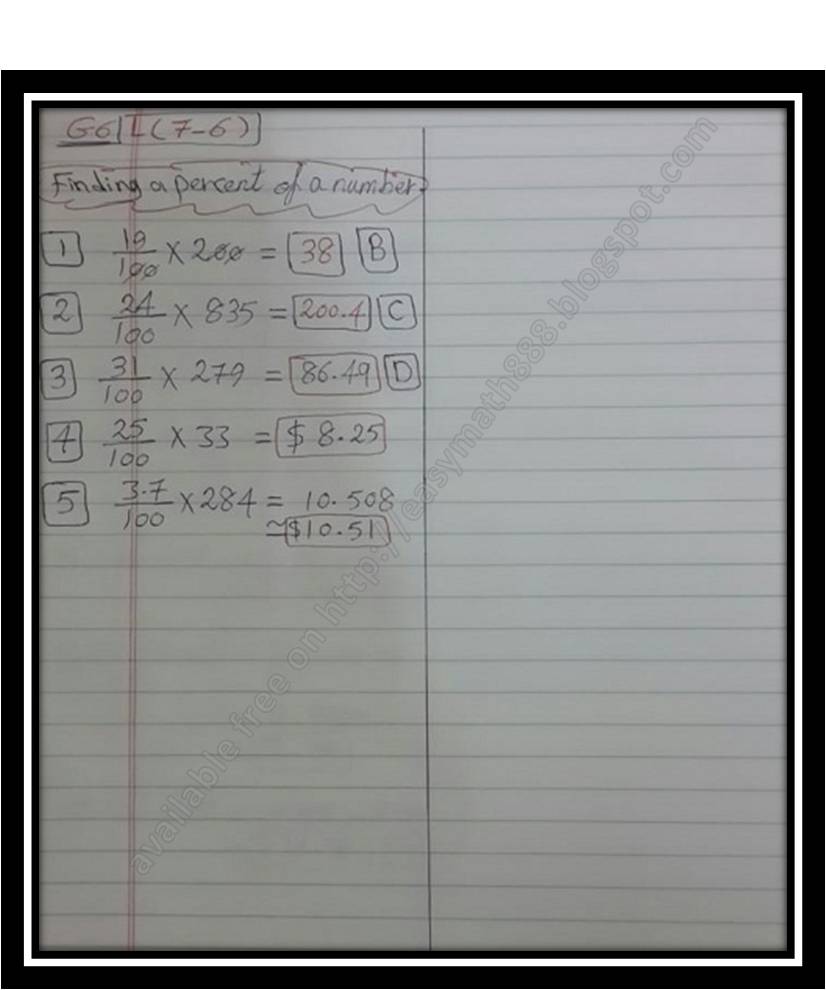 G6 L(7-6)
Finding a percent of a number:
1 19/100 × 200 = 38 B
2 24/100 × 835 = 200.4 C
3 31/100 × 279 = 86.49 D
4 25/100 × 33 = $ 8.25
5 3.7/100 × 284 = 10.508
≃ $10.51
available free on http://easymath888.blogspot.com